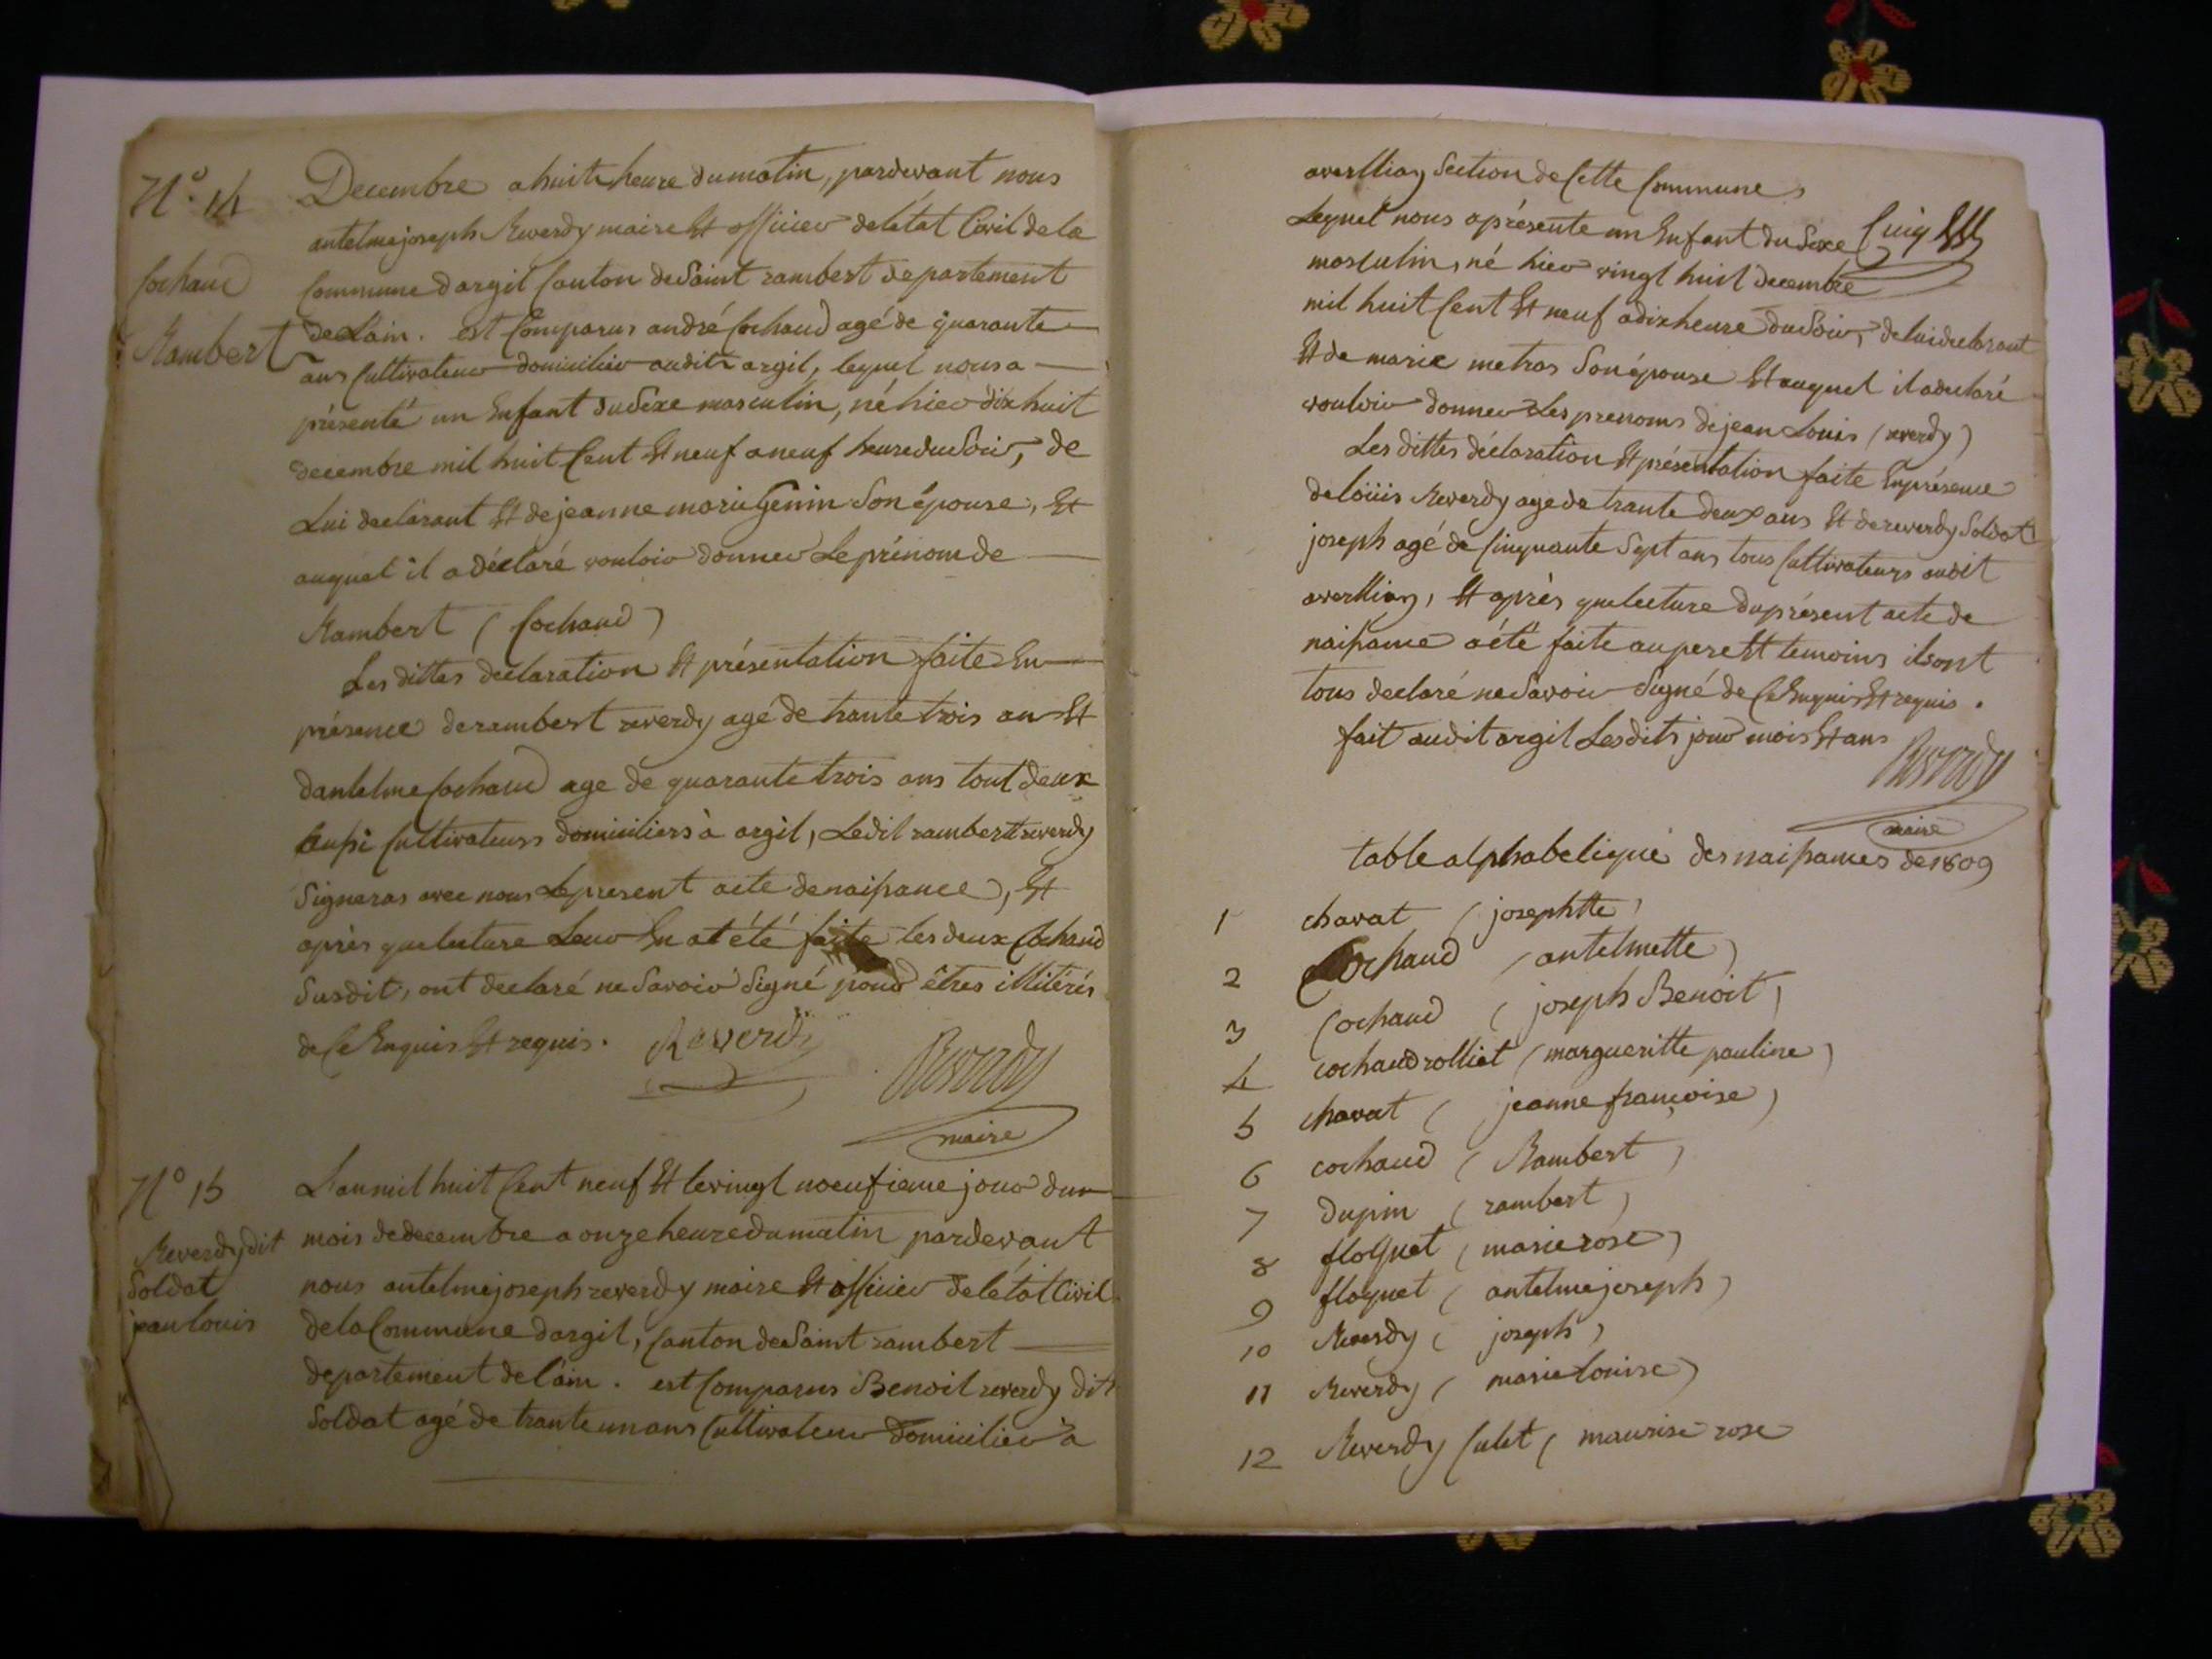 N.° 14
Cochaud
Rambert
Decembre a huit heure du matin, pardevant nous
antelme joseph Reverdy maire Et officier de letat Civil de la
Commune dargil Canton de Saint rambert departement
de Lain. est Comparus andré Cochaud agé de quarante
ans Cultivateur domicilier audit argil, lequel nous a
présenté un Enfant du Sexe masculin, né hier dix huit
decembre mil huit Cent Et neuf a neuf heure du Soir, de
Lui declarant Et de jeanne marie Genin Son épouse, Et
auquel il a déclaré vouloir donner Le prénom de
Rambert (Cochaud)
Les dittes declaration Et présentation faite En
présence de rambert reverdy agé de trante trois an Et
dantelme Cochaud age de quarante trois ans tout deux
aussi Cultivateurs domiciliers à argil, Ledit rambert reverdy
Signeras avec nous Le present acte de naissance, Et
après que lecture Leur En at été faite les deux Cochaud
Susdit, ont declaré ne Savoir Signé pour êtres illitérés
de Ce Enquis Et requis. Reverdy
Reverdy
maire
N° 15
Reverdy dit
Soldat
jean louis
L'an mil huit Cent neuf Et le vingt noeufieme jour du
mois de decembre a onze heure du matin pardevant
nous antelme joseph reverdy maire Et officier de létat Civil
de la Commune dargil, Canton de Saint rambert
departement de l'ain. est Comparus Benoit reverdy dit
Soldat agé de trante un ans Cultivateur domicilier à
averlliaz Section de Cette Commune
Lequel nous a présente un Enfant du Sexe
masculin, né hier vingt huit decembre
mil huit Cent Et neuf a dix heure du Soir, de lui declarant
Et de marie metras Son épouse Et auquel il a declaré
vouloir donner Les prenoms de jean Louis (reverdy)
Les dittes déclaration Et présentation faite En présence
de loüis Reverdy age de trante deux ans Et de reverdy Soldat
joseph agé de Cinquante Sept ans tous Cultivateurs audit
averlliaz, Et après que lecture du présent acte de
naissance a été faite au pere Et temoins ils ont
tous declaré ne Savoir Signé de Ce Enquis Et requis.
fait audit argil Lesdits jour mois Et ans
Reverdy
maire
table alphabetique des naissances de 1809
1 chavat (josephtte)
2 Cochaud (antelmette)
3 Cochaud (joseph Benoit)
4 cochaud rolliet (margueritte pauline)
5 chavat (jeanne françoise)
6 cochaud (Rambert)
7 dupin (rambert)
8 floquet (marie rose)
9 floquet (antelme joseph)
10 Reverdy (joseph)
11 Reverdy (marie louise)
12 Reverdy Culet (maurise rose